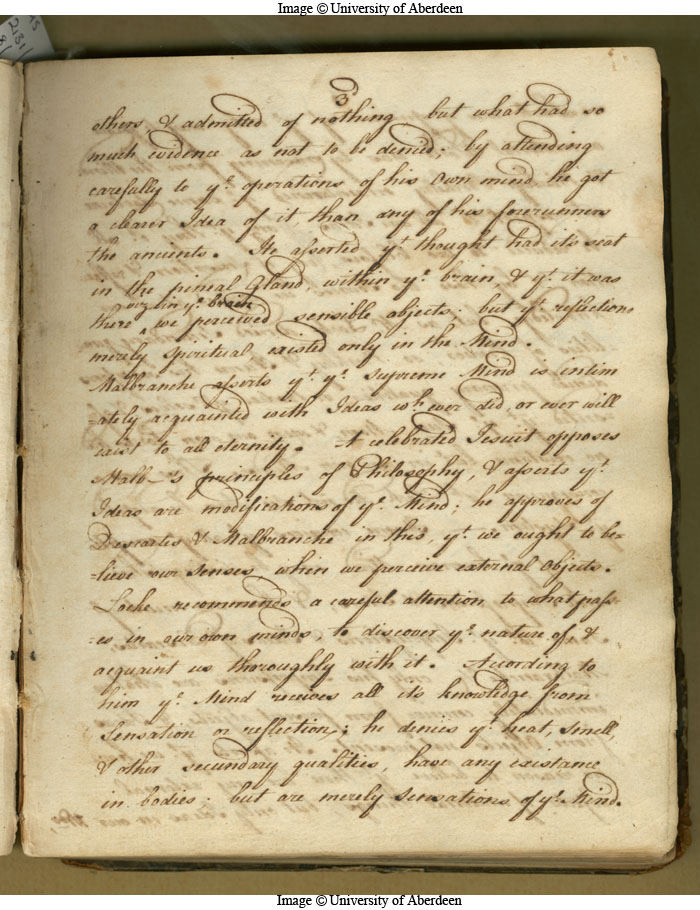 Image © University of Aberdeen
3
others, & admitted of nothing but what had so
much evidence as not to be denied; by attending
carefully to ye. operations of his own mind he got
a clearer Idea of it than any of his forerunners
the ancients. He asserted yt. thought had its seat
in the pineal Gland, within ye. brain, & yt. it was
viz. in ye. brain
there ^ we perceived sensible objects; but yt. reflections
merely spiritual existed only in the Mind.
Malbranche asserts yt. ye. supreme Mind is intim
-ately acquainted with Ideas wh. ever did, or ever will
exist to all eternity. A celebrated Jesuit opposes
Malb-'s principles of Philosophy, & asserts yt.
Ideas are modifications of ye. Mind; he approves of
Descartes & Malbranche in this, yt. we ought to be=
=lieve our senses when we perceive external Objects.
Locke recommends a careful attention to what pass
=es in our own minds, to discover ye. nature of, &
acquaint us thoroughly with it. According to
him ye. Mind receives all its knowledge from
Sensation or reflection; he denies yt. heat, smell,
& other secundary qualities, have any existance
in bodies; but are merely Sensations of ye. Mind.
Image © University of Aberdeen